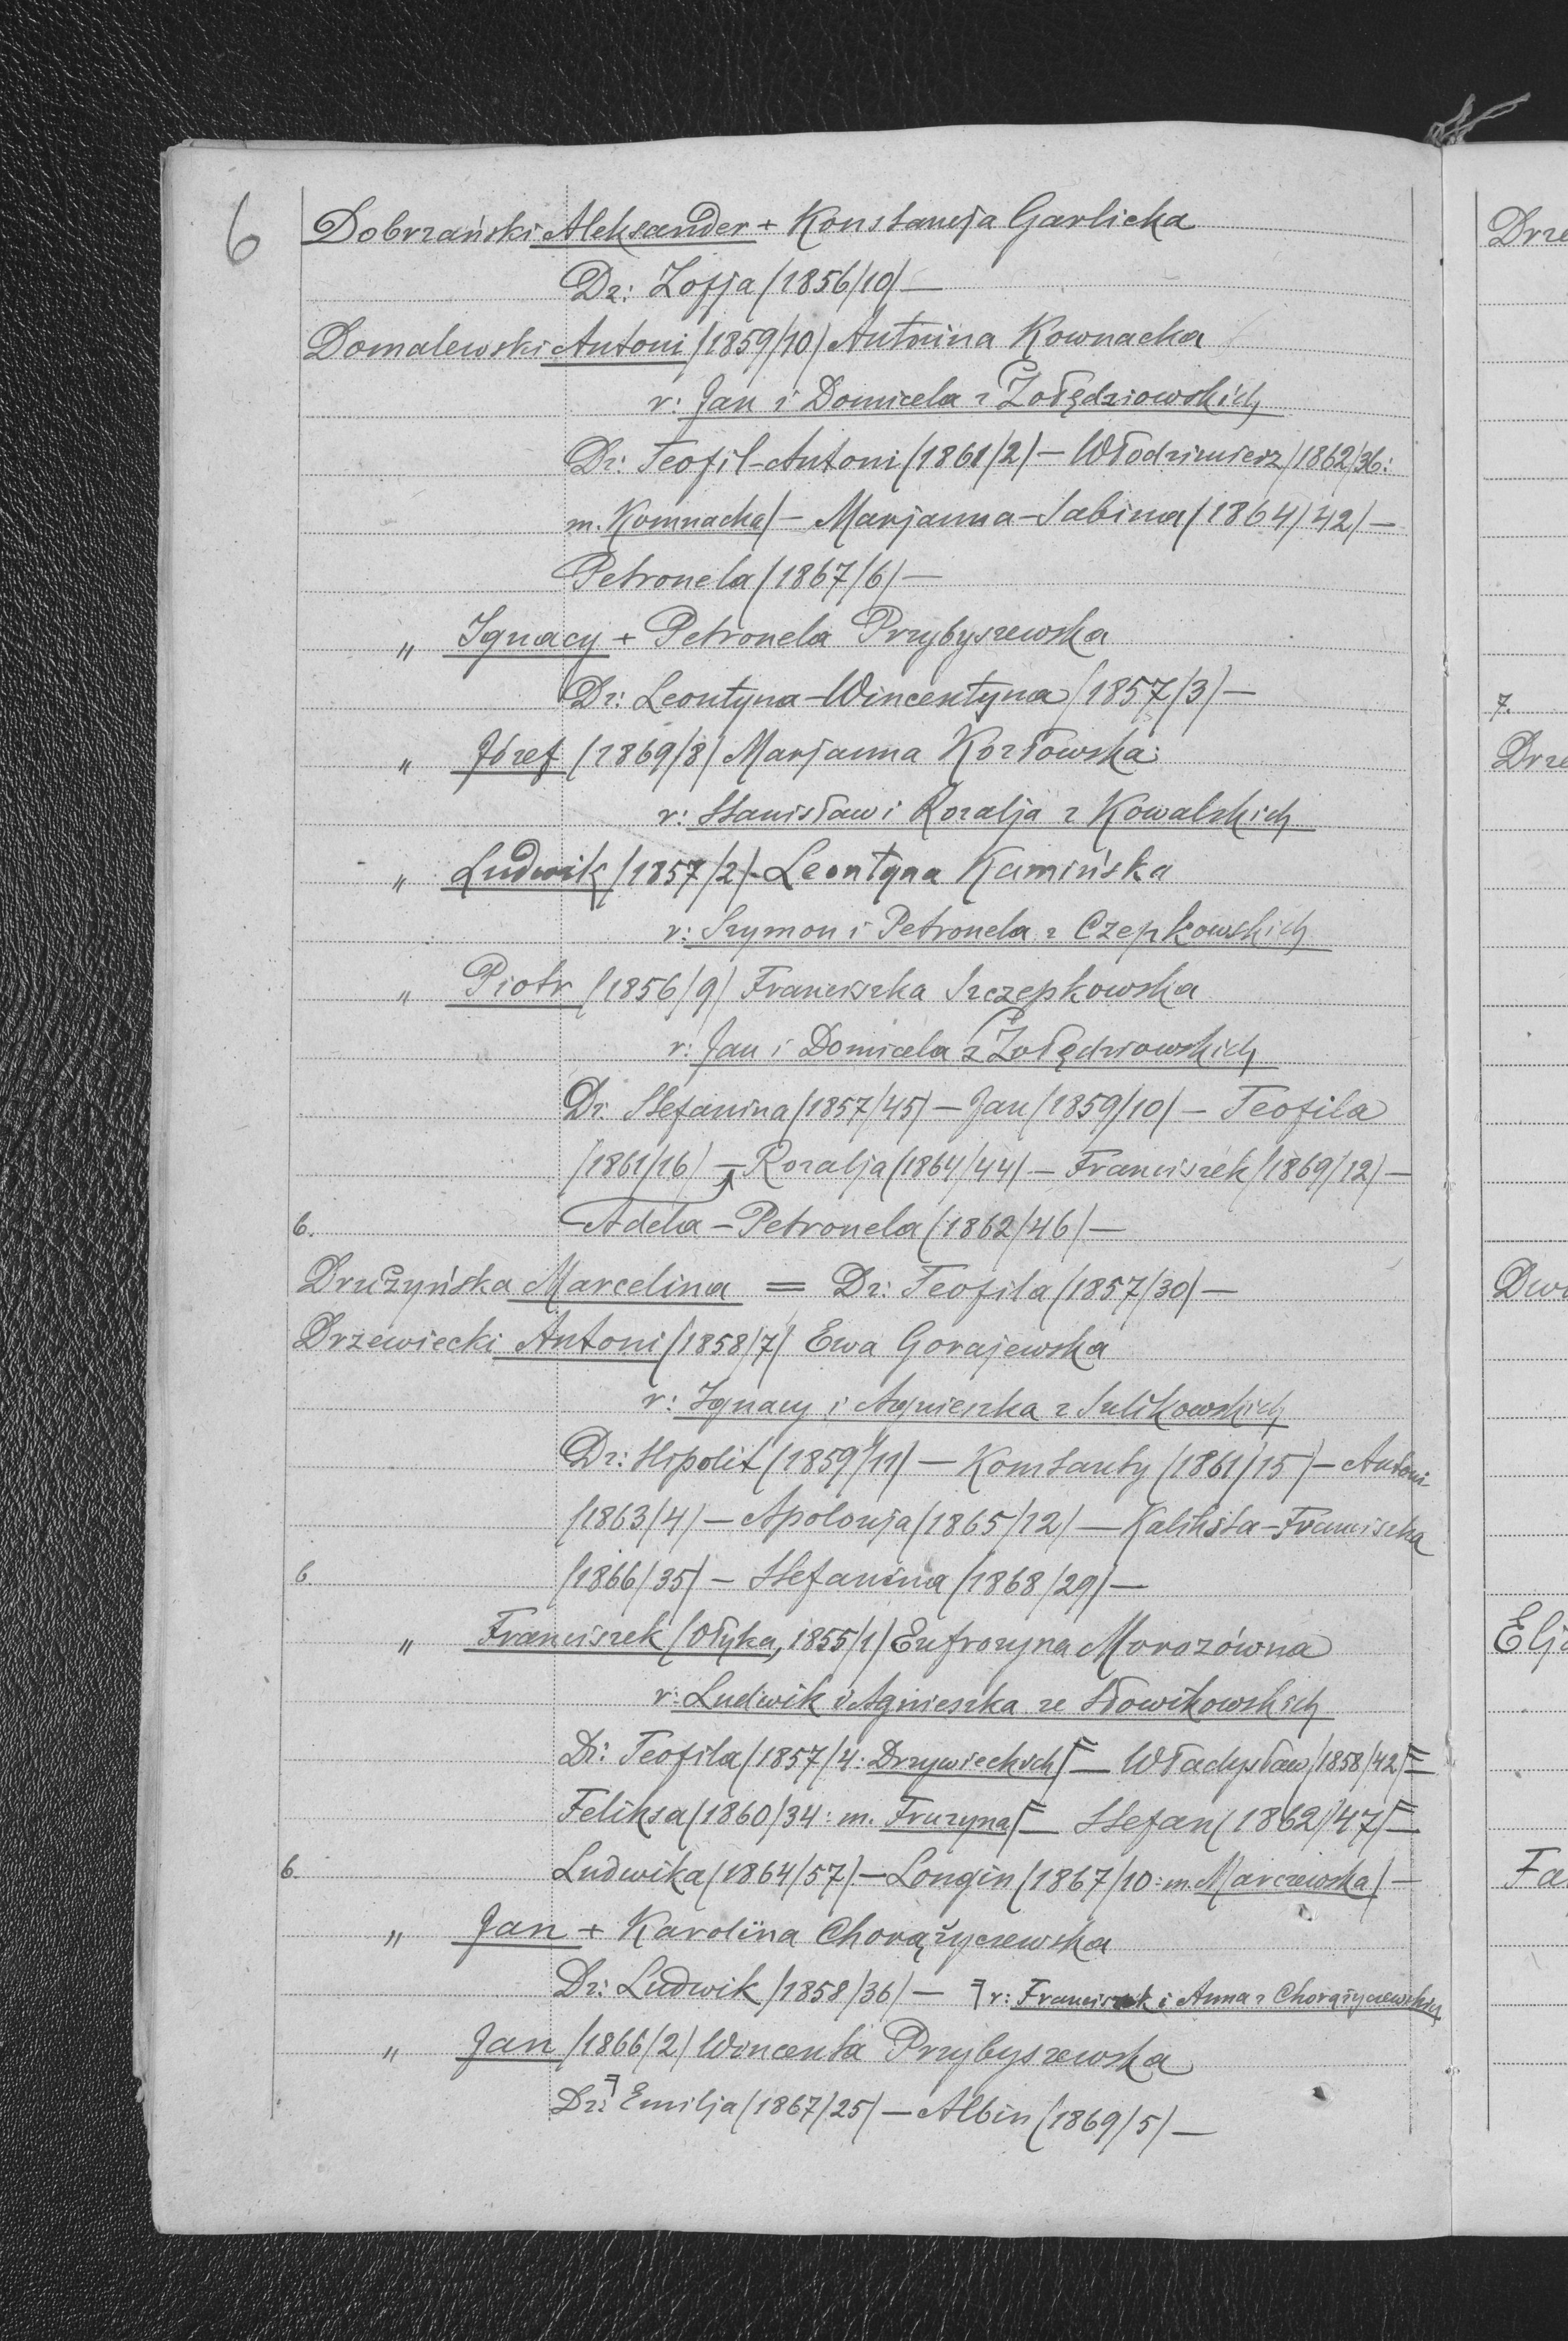 6
Dobrzański Aleksander + Konstancja Garlicka
Dz: Zofja (1856/10) —
Domalewski Antoni (1859/10) Antonina Kownacka
r: Jan i Domicela z Żołędziowskich
Dz: Teofil-Antoni (1861/2) — Włodzimierz (1862/36:
m. Komnacka) — Marjanna-Sabina (1864/42) —
Petronela (1867/6) —
" Ignacy + Petronela Przybyszewska
Dz: Leontyna-Wincentyna (1857/3) —
" Józef (1869/8) Marjanna Kozłowska
r: Stanisław i Rozalja z Kowalskich
" Ludwik (1857/2) - Leontyna Kamińska
r: Szymon i Petronela z Czepkowskich
" Piotr (1856/9) Franciszka Szczepkowska
r: Jan i Domicela z Żołędziowskich
Dz: Stefanina (1857/45) — Jan (1859/10) — Teofila
(1861/16) — Rozalja (1864/44) — Franciszek (1869/12) —
6. Adela-Petronela (1862/46) —
Drużyńska Marcelina = Dz: Teofila (1857/30) —
Drzewiecki Antoni (1858/7) Ewa Gorajewska
r: Ignacy i Agnieszka z Sulikowskich
Dz: Hipolit (1859/11) — Konstanty (1861/15) — Antoni
(1863/4) — Apolonja (1865/12) — Kaliksta-Franciszka
6. (1866/35) — Stefanina (1868/29) —
" Franciszek (Ołyka, 1855/1) Eufrozyna Morozówna
r: Ludwik i Agnieszka ze Słowikowskich
Dz: Teofila (1857/4: Drzywieckich) — Władysław (1858/42) —
Feliksa (1860/34: m. Fruzyna) — Stefan (1862/47) —
6. Ludwika (1864/57) — Longin (1867/10: m. Marczewska) —
" Jan + Karolina Chorążyczewska
Dz: Ludwik (1858/36) — r: Franciszek i Anna z Chorążyczewskich
" Jan (1866/2) Wincenta Przybyszewska
Dz: Emilja (1867/25) — Albin (1869/5) —
Drze
7.
Drze
Dwo
Elja
Fa